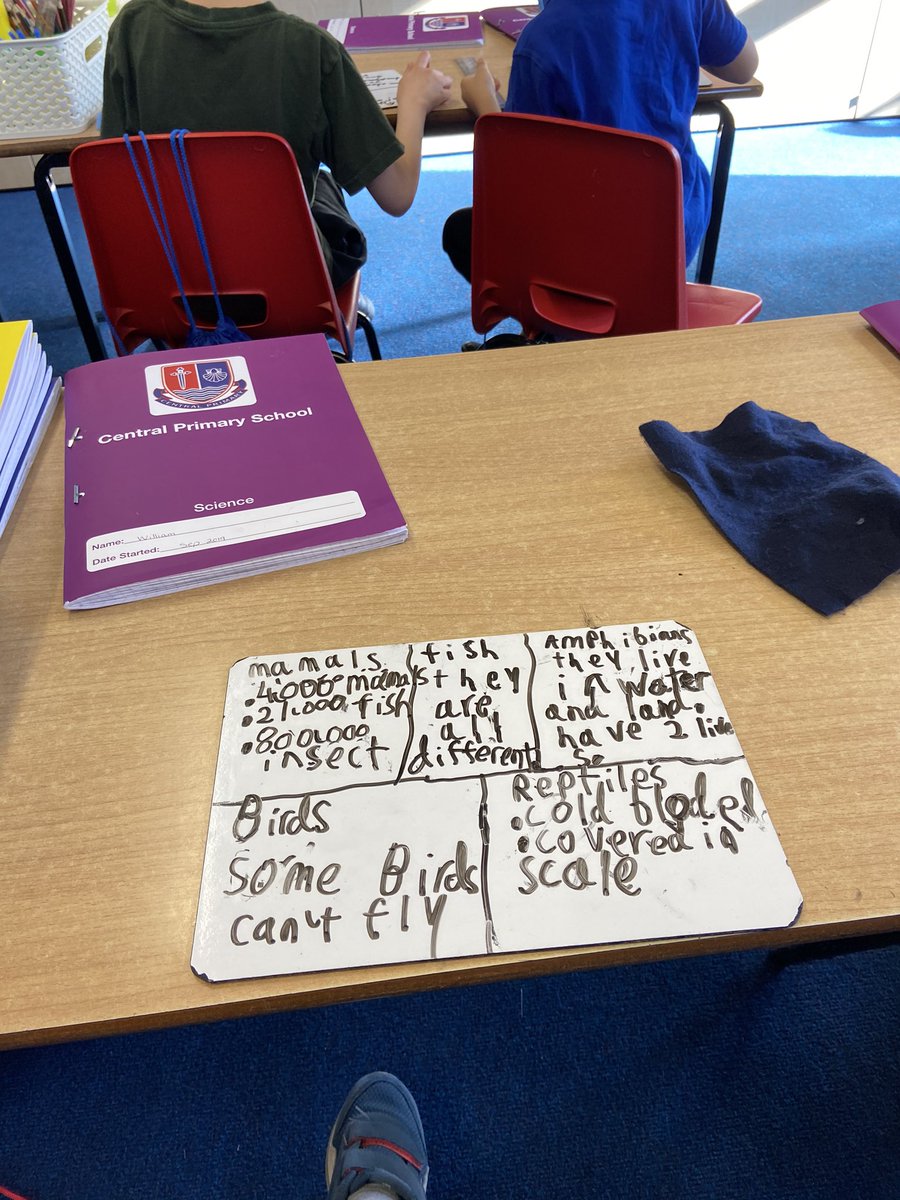 CENTRAL PRIMARY
Central Primary School
Science
Name: William
Date Started: Sep 2019
mamals
.4,000 mamals
.21,000 fish
.800,000
insect
fish
they
are
all
different
AMPhibians
they live
in water
and land.
have 2 live
so
Birds
some Birds
can't fly
Reptiles
.cold bloded
.covered in
scale